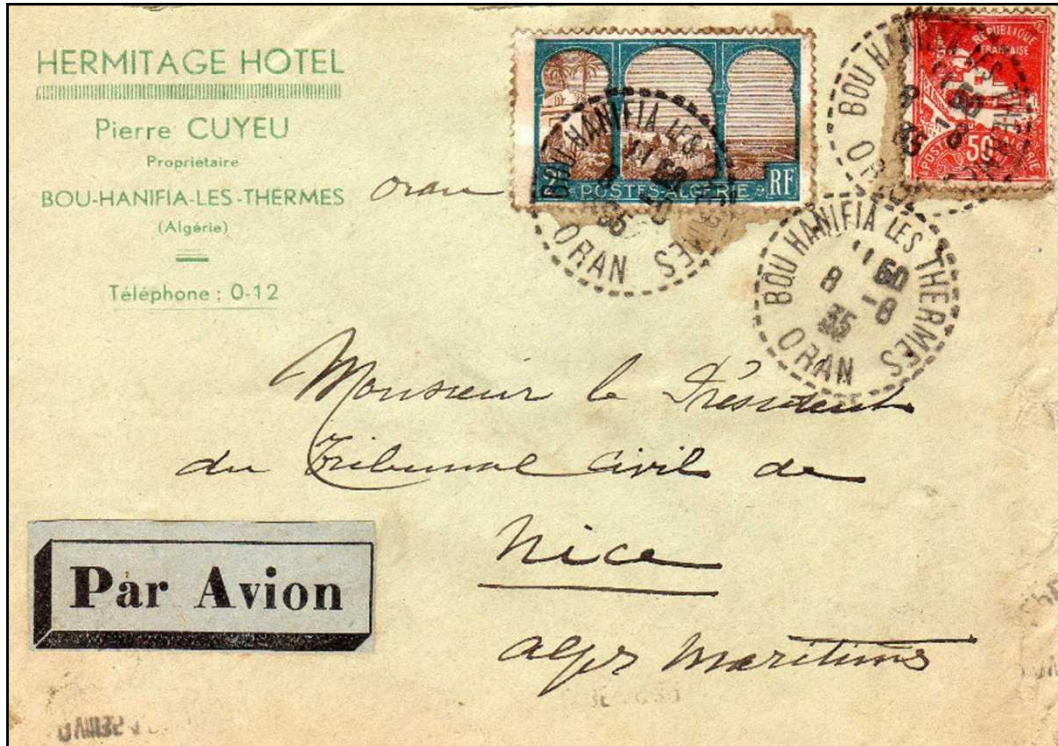 HERMITAGE HOTEL
Pierre CUYEU
Propriétaire
BOU-HANIFIA-LES-THERMES
(Algérie)
Téléphone : 0-12
oran
2F POSTES-ALGÉRIE RF
BOU HANIFIA LES THERMES
8 -8
35
ORAN
RÉPUBLIQUE
FRANÇAISE
POSTES ALGÉRIE
50c
BOU HANIFIA LES THERMES
8 -8
35
ORAN
BOU HANIFIA LES THERMES
8 -8
35
ORAN
Monsieur le Président
du Tribunal Civil de
Nice
Alpes Maritimes
Par Avion